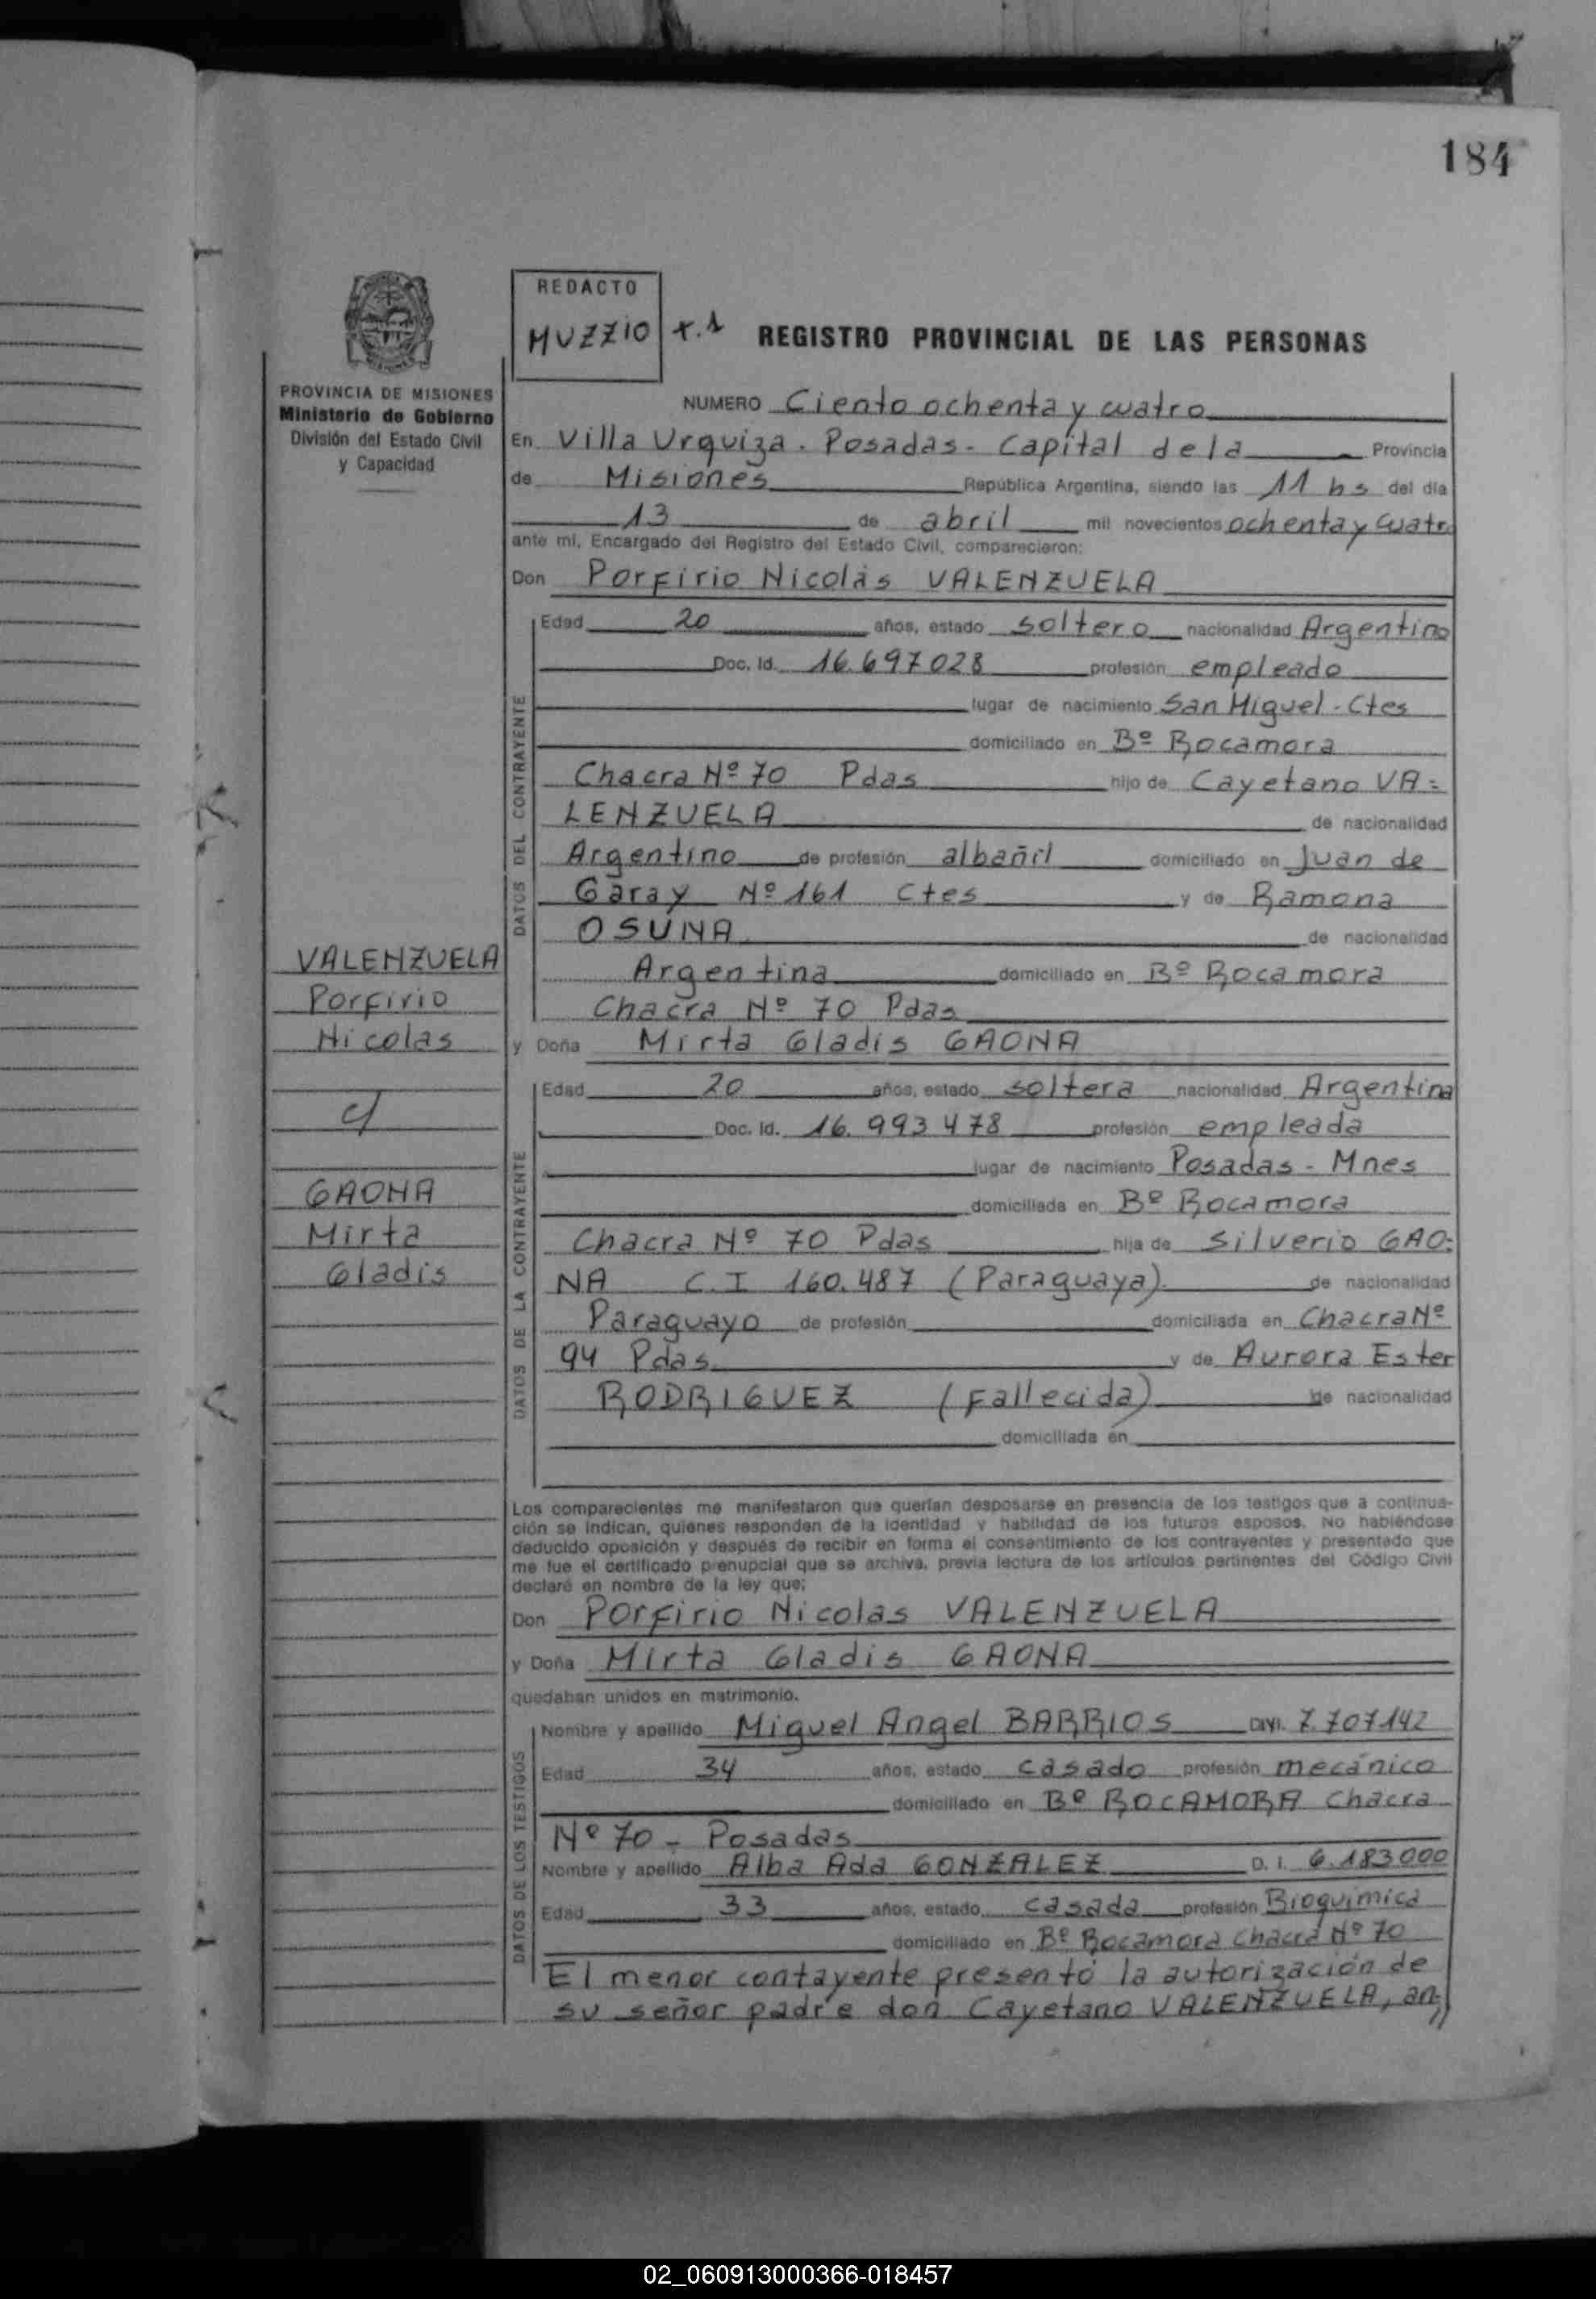 184
REDACTO
MUZZIO
REGISTRO PROVINCIAL DE LAS PERSONAS
PROVINCIA DE MISIONES
Ministerio de Gobierno
División del Estado Civil
y Capacidad
NUMERO Ciento ochenta y cuatro
En Villa Urquiza. Posadas- Capital de la Provincia
de Misiones República Argentina, siendo las 11 hs del día
13 de abril mil novecientos ochenta y cuatro
ante mí, Encargado del Registro del Estado Civil, comparecieron:
Don Porfirio Nicolás VALENZUELA
DATOS DEL CONTRAYENTE
Edad 20 años, estado soltero nacionalidad Argentino
Doc. Id. 16.697028 profesión empleado
lugar de nacimiento San Miguel - Ctes
domiciliado en Bº Rocamora
Chacra Nº 70 Pdas hijo de Cayetano VA=
LENZUELA de nacionalidad
Argentino de profesión albañil domiciliado en Juan de
Garay Nº 161 Ctes y de Ramona
OSUNA de nacionalidad
Argentina domiciliado en Bº Rocamora
Chacra Nº 70 Pdas
VALENZUELA
Porfirio
Nicolas
c/
GAONA
Mirta
Gladis
y Doña Mirta Gladis GAONA
DATOS DE LA CONTRAYENTE
Edad 20 años, estado soltera nacionalidad Argentina
Doc. Id. 16.993478 profesión empleada
lugar de nacimiento Posadas - Mnes
domiciliada en Bº Rocamora
Chacra Nº 70 Pdas hija de Silverio GAO=
NA C.I 160.487 (Paraguaya) de nacionalidad
Paraguayo de profesión domiciliada en Chacra Nº
94 Pdas y de Aurora Ester
RODRIGUEZ (Fallecida) de nacionalidad
domiciliada en
Los comparecientes me manifestaron que querían desposarse en presencia de los testigos que a continua-
ción se indican, quienes responden de la identidad y habilidad de los futuros esposos. No habiéndose
deducido oposición y después de recibir en forma el consentimiento de los contrayentes y presentado que
me fue el certificado prenupcial que se archiva, previa lectura de los artículos pertinentes del Código Civil
declaré en nombre de la ley que;
Don Porfirio Nicolas VALENZUELA
y Doña Mirta Gladis GAONA
quedaban unidos en matrimonio.
DATOS DE LOS TESTIGOS
Nombre y apellido Miguel Angel BARRIOS 7.707142
Edad 34 años, estado casado profesión mecánico
domiciliado en Bº ROCAMORA Chacra
Nº 70 - Posadas
Nombre y apellido Alba Ada GONZALEZ D. I. 6.183000
Edad 33 años, estado casada profesión Bioquímica
domiciliado en Bº Rocamora Chacra Nº 70
El menor contayente presentó la autorización de
su señor padre don Cayetano VALENZUELA, an//
02_060913000366-018457